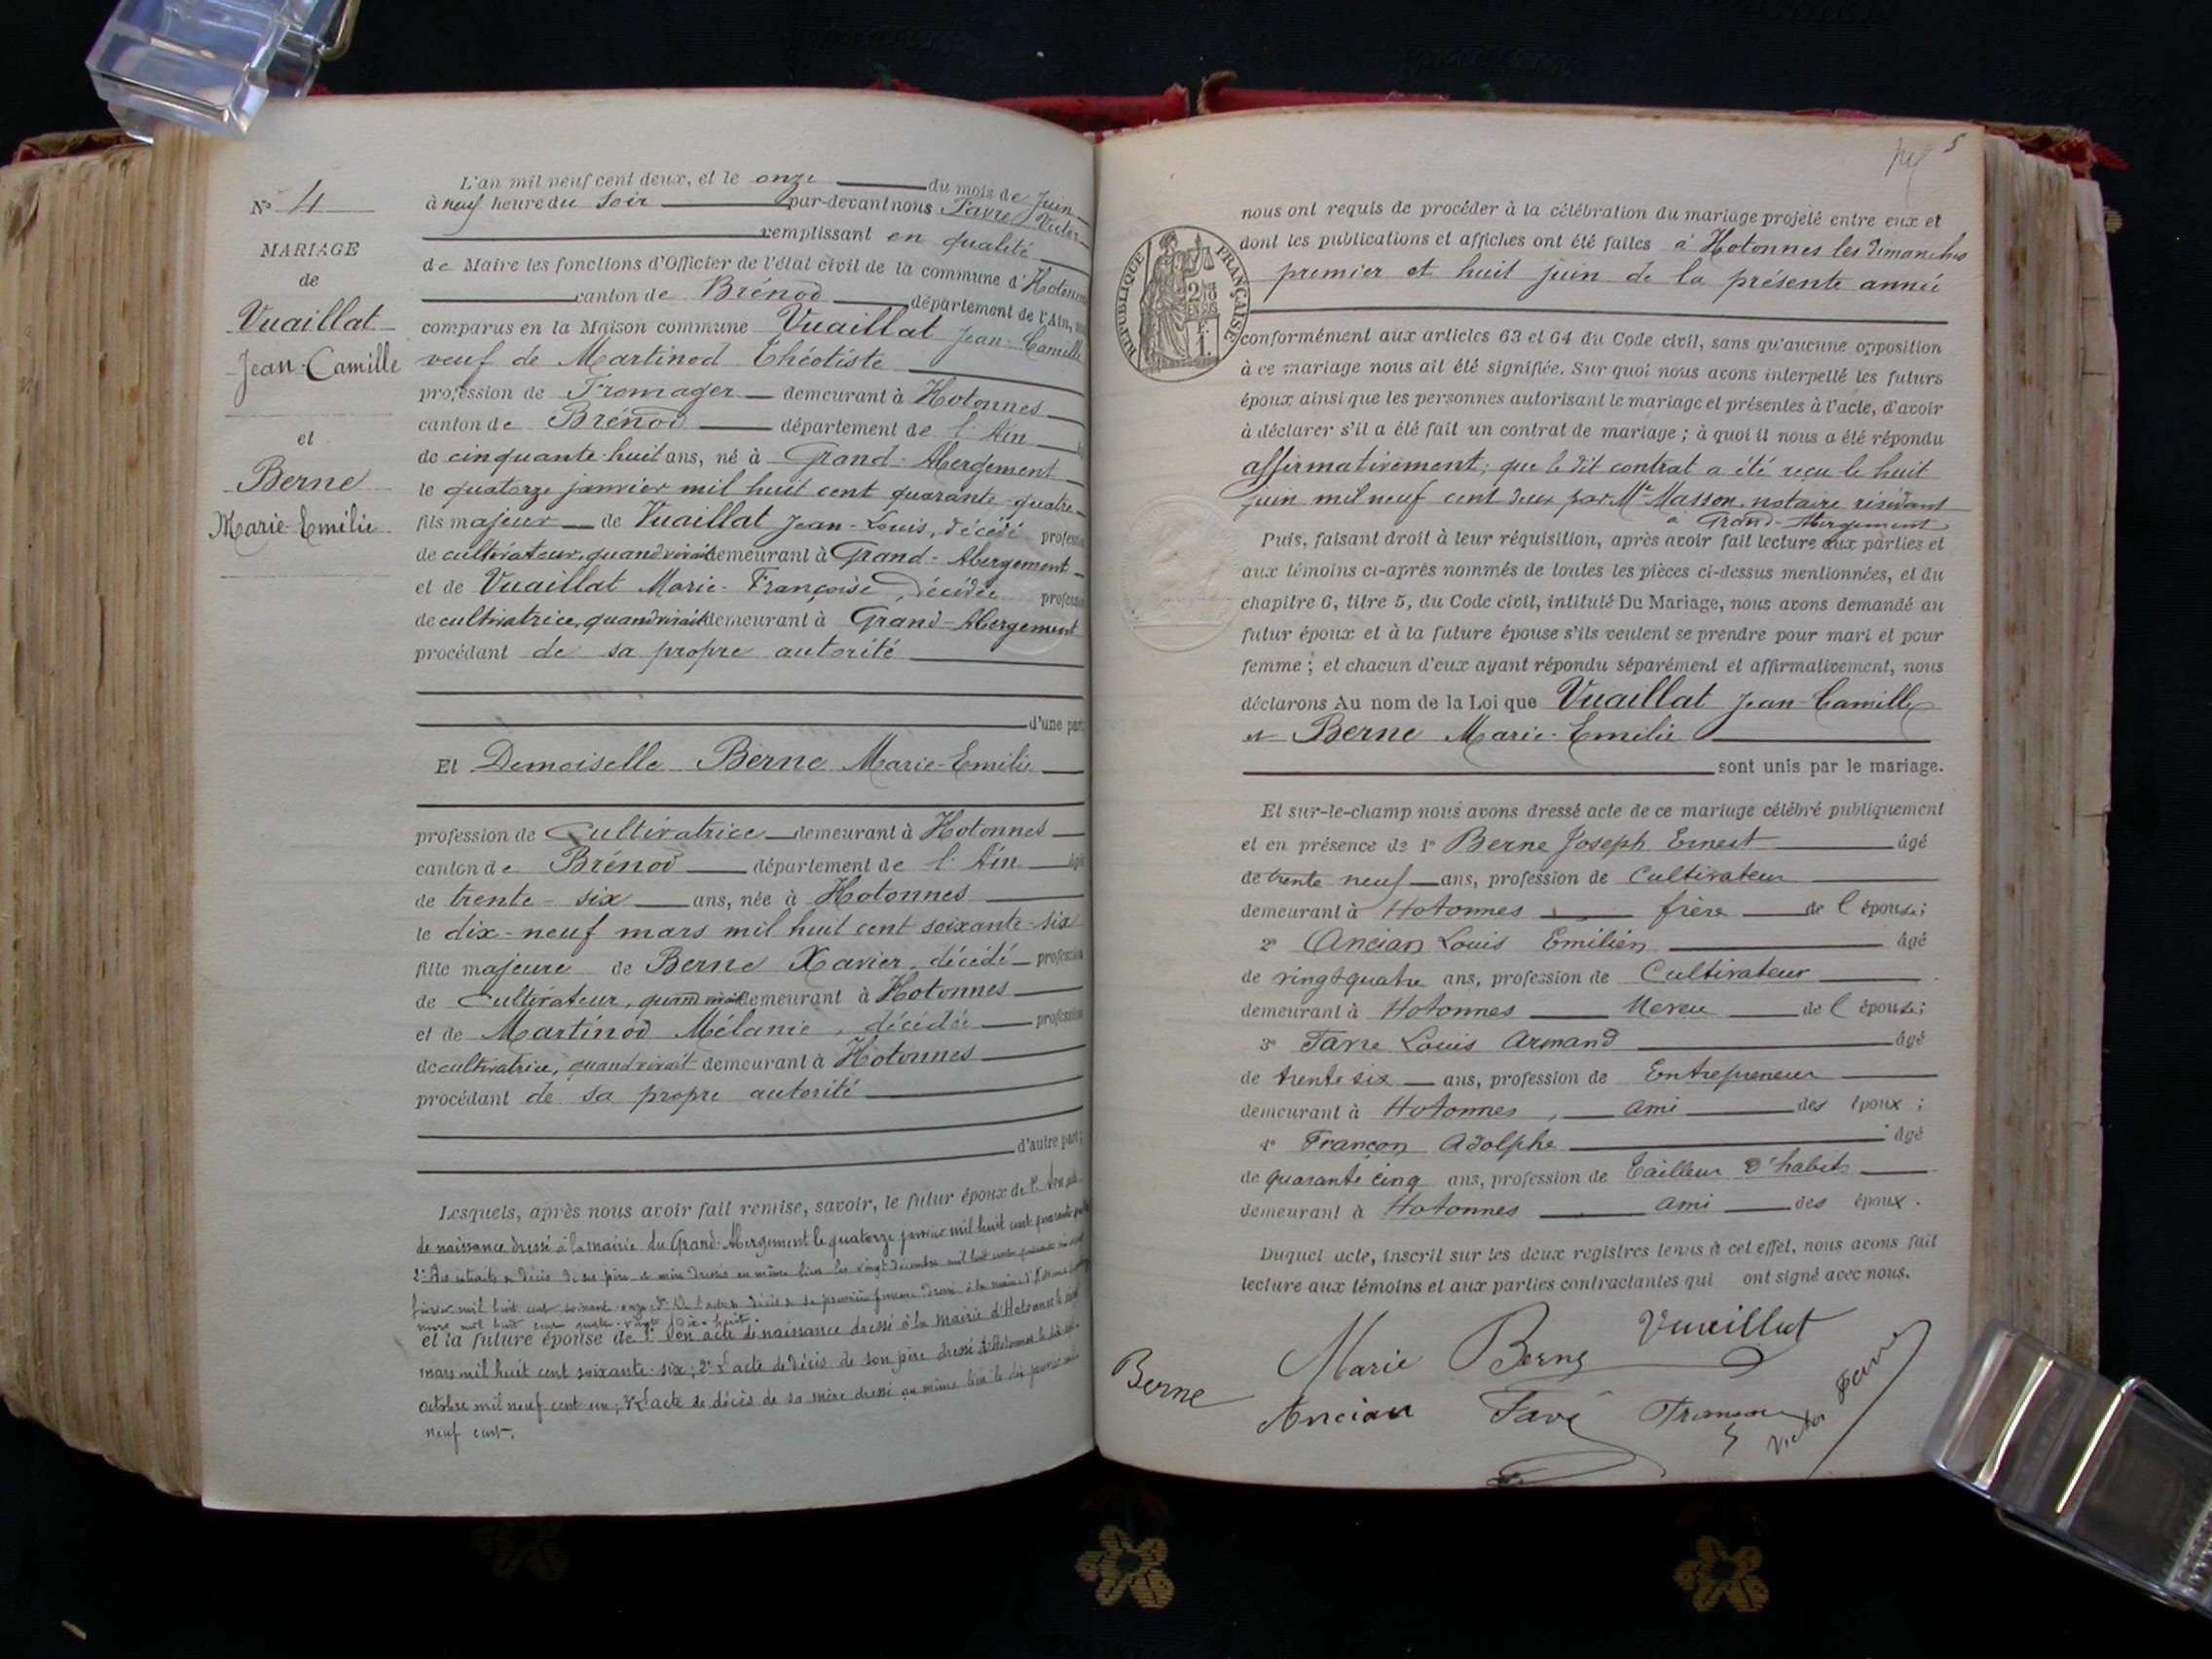 N° 4
MARIAGE
de
Vuaillat
Jean-Camille
et
Berne
Marie-Emilie
L'an mil neuf cent deux, et le onze du mois de Juin
à neuf heure du soir par-devant nous Favre Victor
remplissant en qualité
de Maire les fonctions d'Officier de l'état civil de la commune d'Hotonnes
canton de Brénod département de l'Ain,
comparus en la Maison commune Vuaillat Jean-Camille
veuf de Martinod Théotiste
profession de Fromager demeurant à Hotonnes
canton de Brénod département de l'Ain
de cinquante-huit ans, né à Grand-Abergement
le quatorze janvier mil huit cent quarante-quatre
fils majeur de Vuaillat Jean-Louis, décédé profession
de cultivateur, quand vivait demeurant à Grand-Abergement
et de Vuaillat Marie-Françoise, décédée profession
de cultivatrice, quand vivait demeurant à Grand-Abergement
procédant de sa propre autorité
d'une part
Et Demoiselle Berne Marie-Emilie
profession de Cultivatrice demeurant à Hotonnes
canton de Brénod département de l'Ain âgé
de trente-six ans, née à Hotonnes
le dix-neuf mars mil huit cent soixante-six
fille majeure de Berne Xavier, décédé profession
de Cultivateur, quand vivait demeurant à Hotonnes
et de Martinod Mélanie, décédée profession
de cultivatrice, quand vivait demeurant à Hotonnes
procédant de sa propre autorité
d'autre part;
Lesquels, après nous avoir fait remise, savoir, le futur époux de 1°
de naissance dressé à la mairie du Grand-Abergement le quatorze janvier mil huit cent quarante quatre
2° Des extraits de décès de ses père et mère dressés au même lieu les vingt décembre mil huit cent
février mil huit cent soixante-onze; 3° De l'acte de décès de sa première femme dressé à la mairie d'Hotonnes
mars mil huit cent quatre-vingt dix-huit.
et la future épouse de 1° Son acte de naissance dressé à la mairie d'Hotonnes le
mars mil huit cent soixante-six; 2° L'acte de décès de son père dressé à Hotonnes le
octobre mil neuf cent un; 3° L'acte de décès de sa mère dressé au même lieu le dix janvier mil
neuf cent.
5
RÉPUBLIQUE FRANÇAISE
nous ont requis de procéder à la célébration du mariage projeté entre eux et
dont les publications et affiches ont été faites à Hotonnes les dimanches
premier et huit juin de la présente année
conformément aux articles 63 et 64 du Code civil, sans qu'aucune opposition
à ce mariage nous ait été signifiée. Sur quoi nous avons interpellé les futurs
époux ainsi que les personnes autorisant le mariage et présentes à l'acte, d'avoir
à déclarer s'il a été fait un contrat de mariage; à quoi il nous a été répondu
affirmativement; que le dit contrat a été reçu le huit
juin mil neuf cent deux par Me Masson, notaire résidant
à Grand-Abergement
Puis, faisant droit à leur réquisition, après avoir fait lecture aux parties et
aux témoins ci-après nommés de toutes les pièces ci-dessus mentionnées, et du
chapitre 6, titre 5, du Code civil, intitulé Du Mariage, nous avons demandé au
futur époux et à la future épouse s'ils veulent se prendre pour mari et pour
femme; et chacun d'eux ayant répondu séparément et affirmativement, nous
déclarons Au nom de la Loi que Vuaillat Jean-Camille
et Berne Marie-Emilie
sont unis par le mariage.
Et sur-le-champ nous avons dressé acte de ce mariage célébré publiquement
et en présence de 1° Berne Joseph Ernest âgé
de trente neuf ans, profession de Cultivateur
demeurant à Hotonnes frère de l'épouse;
2° Ancian Louis Emilien âgé
de vingt quatre ans, profession de Cultivateur
demeurant à Hotonnes Neveu de l'épouse;
3° Favre Louis Armand âgé
de trente six ans, profession de Entrepreneur
demeurant à Hotonnes, ami des époux;
4° Françon Adolphe âgé
de quarante cinq ans, profession de Tailleur d'habits
demeurant à Hotonnes ami des époux.
Duquel acte, inscrit sur les deux registres tenus à cet effet, nous avons fait
lecture aux témoins et aux parties contractantes qui ont signé avec nous.
Vuaillat
Marie Berne
Berne
Ancian Favre Françon Victor Favre